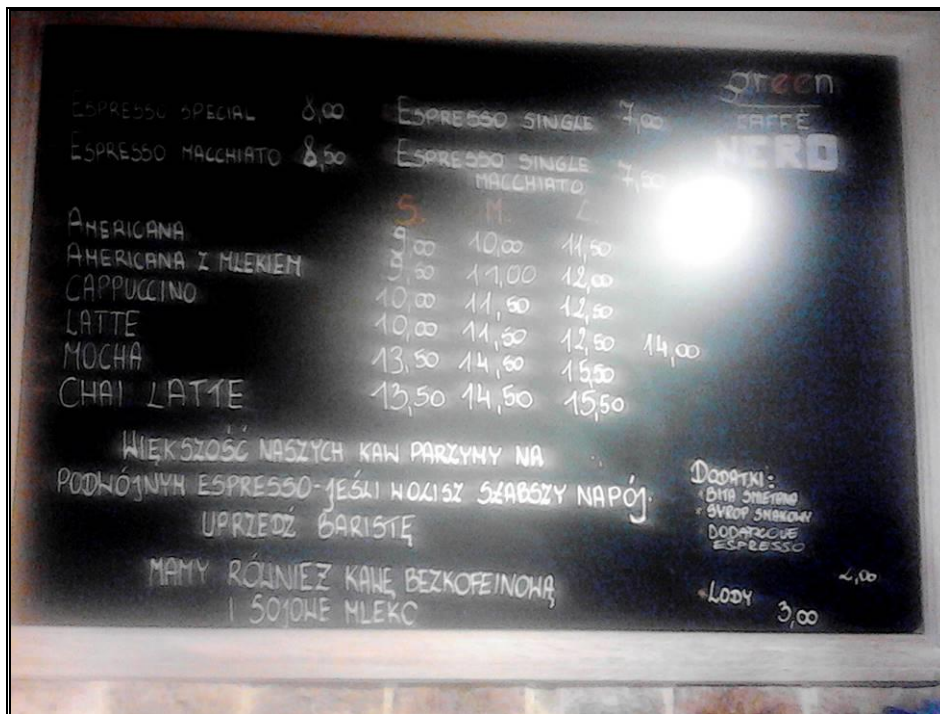 green
CAFFÈ
NERO
ESPRESSO SPECIAL 8,00 ESPRESSO SINGLE 7,00
ESPRESSO MACCHIATO 8,50 ESPRESSO SINGLE
MACCHIATO 7,50
S. M. L.
AMERICANA 9,00 10,00 11,50
AMERICANA Z MLEKIEM 9,50 11,00 12,00
CAPPUCCINO 10,00 11,50 12,50
LATTE 10,00 11,50 12,50 14,00
MOCHA 13,50 14,50 15,50
CHAI LATTE 13,50 14,50 15,50
WIĘKSZOŚĆ NASZYCH KAW PARZYMY NA
PODWÓJNYM ESPRESSO-JEŚLI WOLISZ SŁABSZY NAPÓJ
UPRZEDŹ BARISTĘ
MAMY RÓWNIEŻ KAWĘ BEZKOFEINOWĄ
I SOJOWE MLEKO
DODATKI:
BITA SMIETANA
SYROP SMAKOWY
DODATKOWE
ESPRESSO
2,00
LODY 3,00